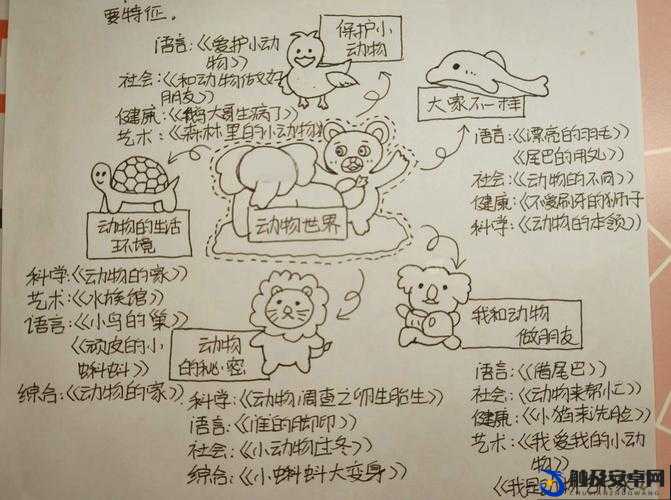 要特征。
保护小
动物
语言:《爱护小动
物》
社会:《和动物做好
朋友》
健康:《鹅大哥生病了》
艺术:《森林里的小动物》
大家不一样
语言:《漂亮的羽毛》
《尾巴的用处》
社会:《动物的不同》
健康:《不爱刷牙的狮子
科学:《动物的本领》
动物世界
动物的生活
环境
科学:《动物的家》
艺术:《水族馆》
语言:《小鸟的巢》
《顽皮的小
蝌蚪》
综合:《动物的家》
动物
的秘密
科学:《动物调查之卵生胎生》
语言:《谁的脚印》
社会:《小动物过冬》
综合:《小蝌蚪大变身》
我和动物
做朋友
语言:《借尾巴》
社会:《动物来帮忙》
健康:《小猫来洗脸》
艺术:《我爱我的小动
物》
《我是动
触及安卓网